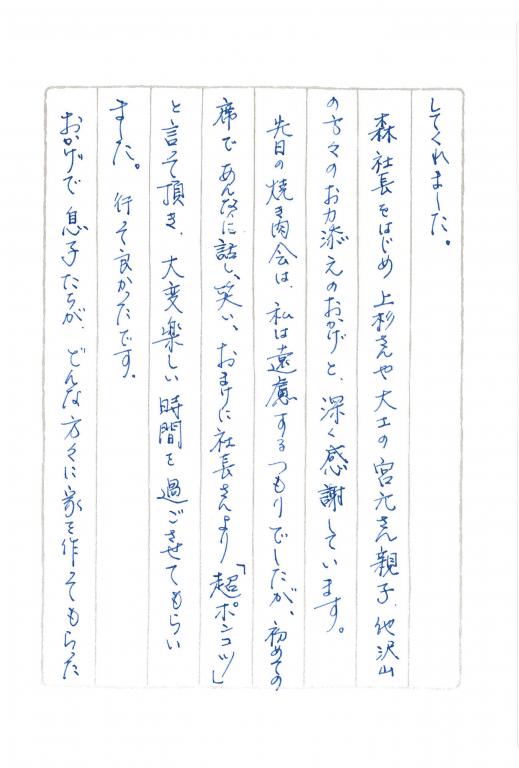 してくれました。
森社長をはじめ 上杉さんや大工の宮元さん親子、他沢山
の方々のお力添えのおかげと、深く感謝しています。
先日の焼き肉会は、私は遠慮するつもりでしたが、初めての
席であんなに話し、笑い、おまけに社長さんより「超ポンコツ」
と言って頂き、大変楽しい時間を過ごさせてもらい
ました。行って良かったです。
おかげで息子たちが、どんな方々に家を作ってもらった